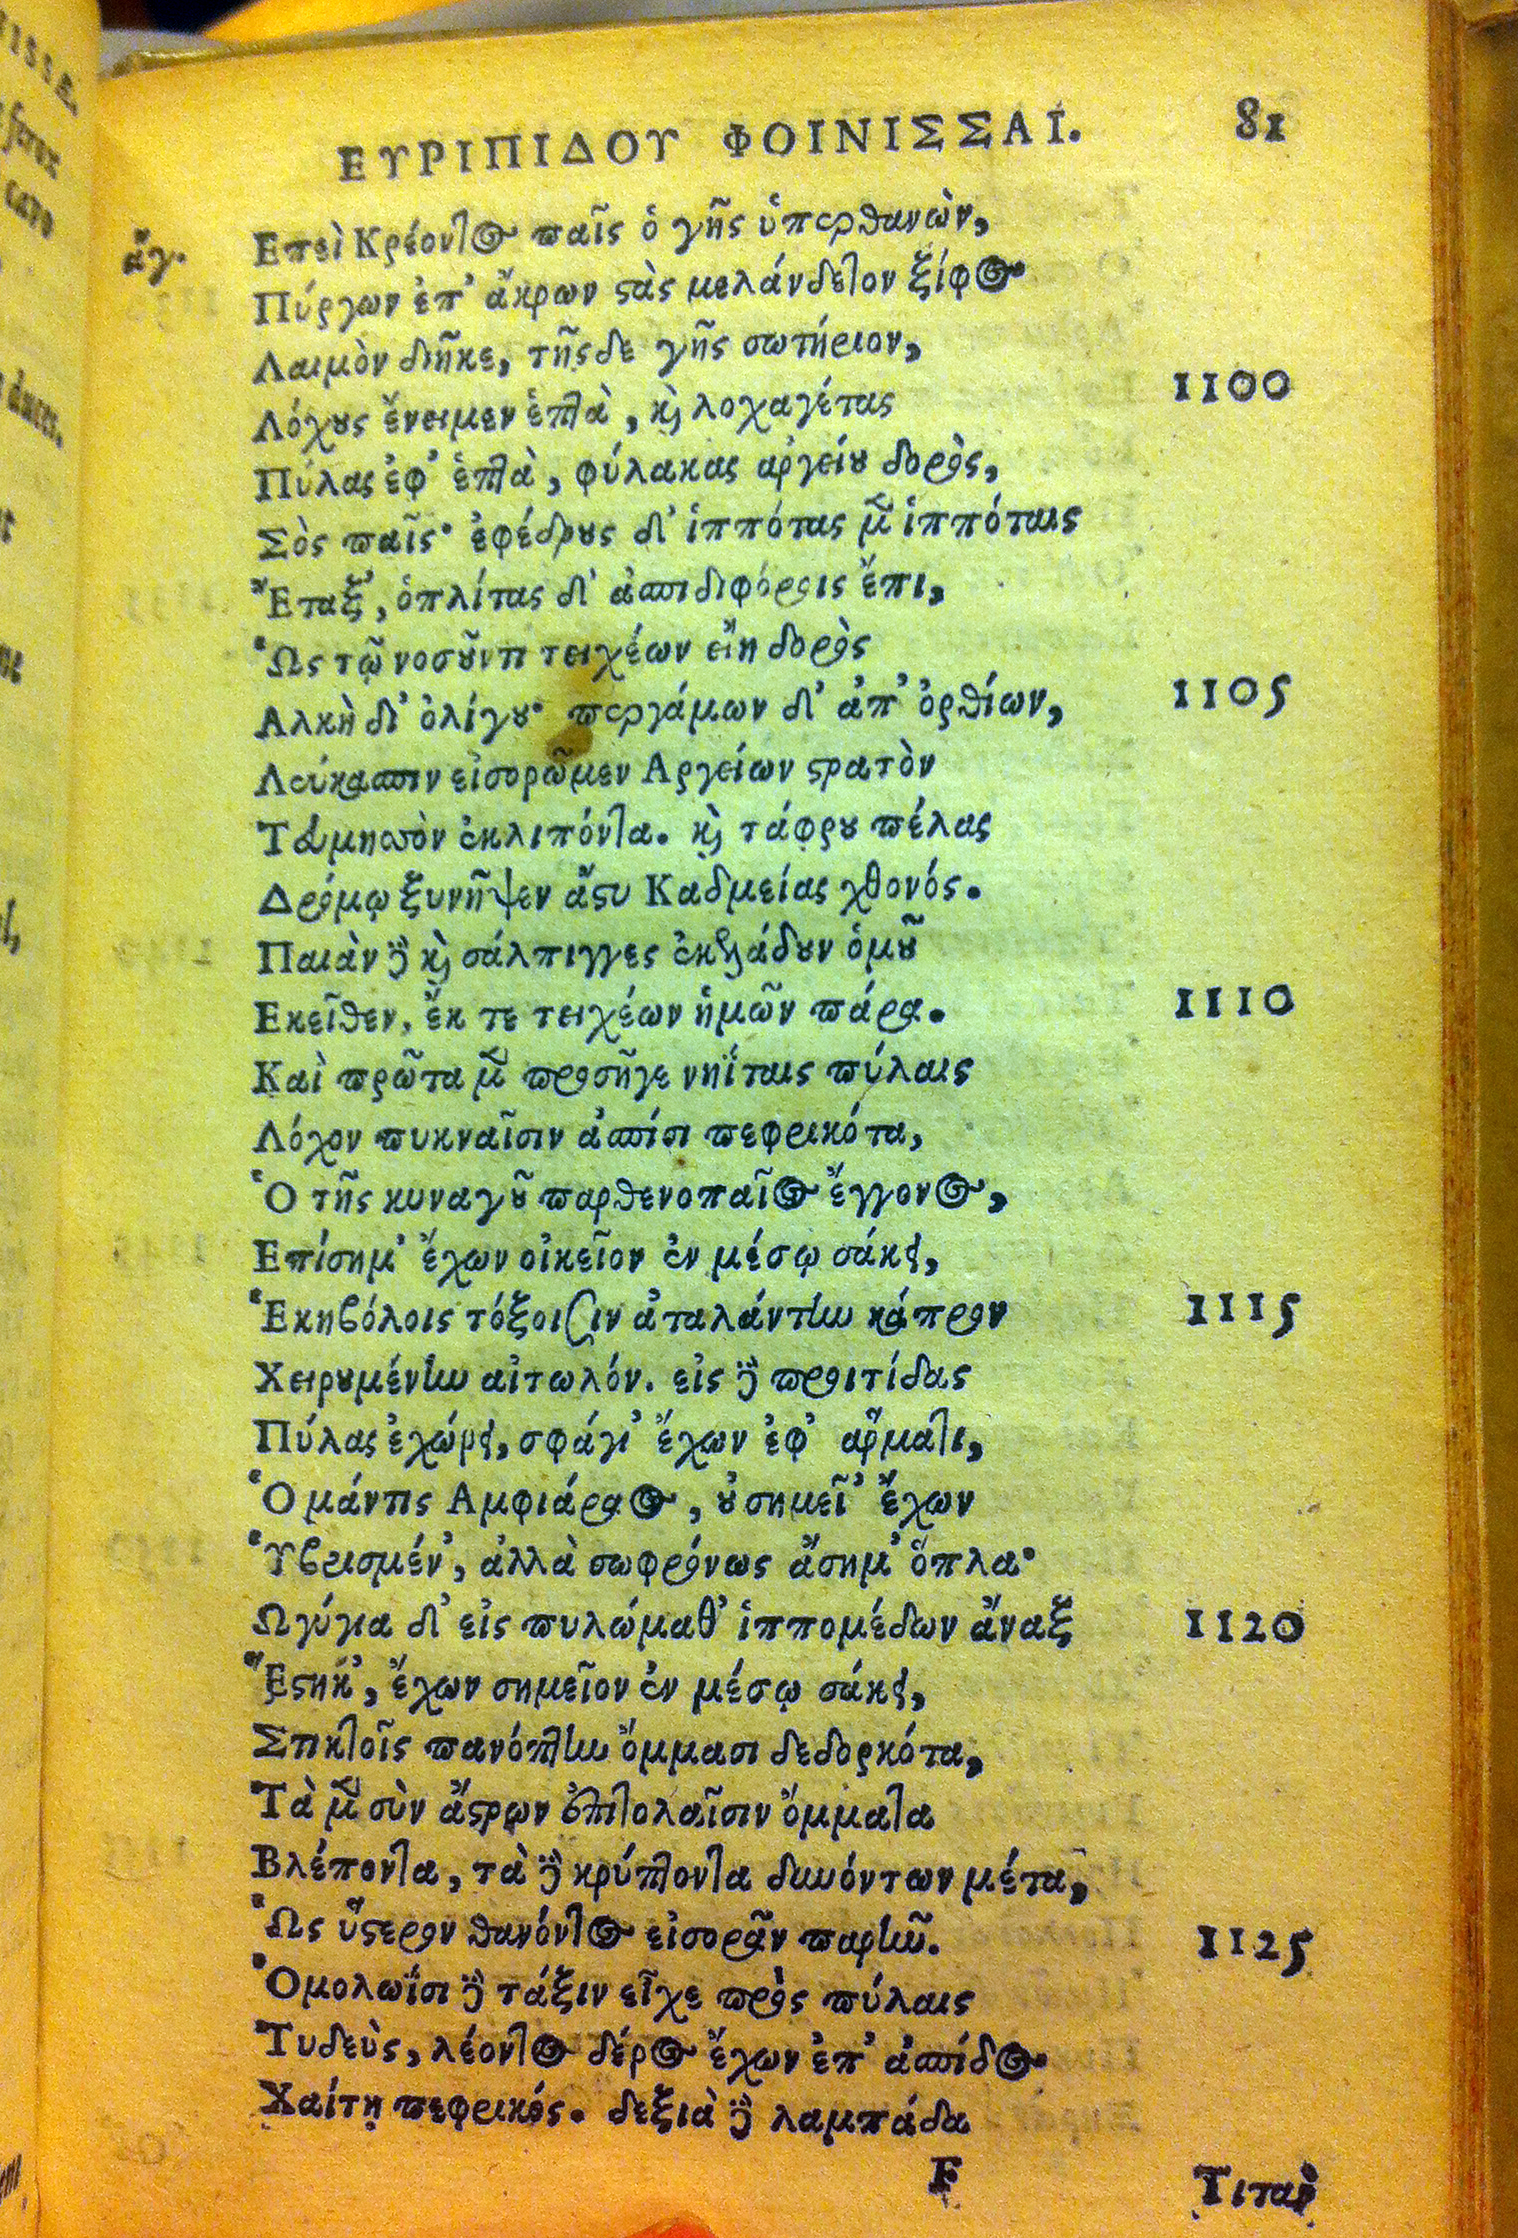 ΕΥΡΙΠΙΔΟΥ ΦΟΙΝΙΣΣΑΙ. 81
ἄγ. Επεὶ Κρέοντος παῖς ὁ γῆς ὑπερθανὼν,
Πύργων ἐπ' ἄκρων στὰς μελάνδετον ξίφος
Λαιμὸν διῆκε, τῆςδε γῆς σωτήριον,
Λόχους ἔνειμεν ἑπτὰ, καὶ λοχαγέτας 1100
Πύλας ἐφ' ἑπτὰ, φύλακας αργείου δορὸς,
Σὸς παῖς· ἐφέδρους δ' ἱππότας μὲν ἱππόταις
Ἔταξ', ὁπλίτας δ' ἀσπιδιφόροις ἔπι,
Ὡς τῷ νοσοῦντι τειχέων εἴη δορὸς
Αλκὴ δι' ὀλίγου· περγάμων δ' ἀπ' ὀρθίων, 1105
Λεύκασπιν εἰσορῶμεν Αργείων στρατὸν
Τευμησσὸν ἐκλιπόντα. καὶ τάφρου πέλας
Δρόμῳ ξυνῆψεν ἄστυ Καδμείας χθονός.
Παιὰν δὲ καὶ σάλπιγγες ἐκελάδουν ὁμοῦ
Εκεῖθεν, ἔκ τε τειχέων ἡμῶν πάρα. 1110
Καὶ πρῶτα μὲν προσῆγε νηΐταις πύλαις
Λόχον πυκναῖσιν ἀσπίσι πεφρικότα,
Ὁ τῆς κυναγοῦ παρθενοπαῖος ἔγγονος,
Επίσημ' ἔχων οἰκεῖον ἐν μέσῳ σάκει,
Ἑκηβόλοις τόξοισιν ἀταλάντην κάπρον 1115
Χειρουμένην αἰτωλόν. εἰς δὲ προιτίδας
Πύλας ἐχώρει, σφάγι' ἔχων ἐφ' αρματι,
Ὁ μάντις Αμφιάραος, οὐ σημεῖ' ἔχων
Ὑβρισμέν', ἀλλὰ σωφρόνως ἄσημ' ὅπλα·
Ωγύγια δ' εἰς πυλώμαθ' ἱππομέδων ἄναξ 1120
Ἕστηκ', ἔχων σημεῖον ἐν μέσῳ σάκει,
Στικτοῖς πανόπτην ὄμμασι δεδορκότα,
Τὰ μὲν σὺν ἄστρων ἐπιτολαῖσιν ὄμματα
Βλέποντα, τὰ δὲ κρύπτοντα δυνόντων μέτα,
Ὡς ὕστερον θανόντος εἰσορᾶν παρῆν. 1125
Ὁμολωΐσι δὲ τάξιν εἶχε πρὸς πύλαις
Τυδεὺς, λέοντος δέρος ἔχων ἐπ' ἀσπίδος
Χαίτῃ πεφρικός. δεξιὰ δὲ λαμπάδα
F Τιτὰν